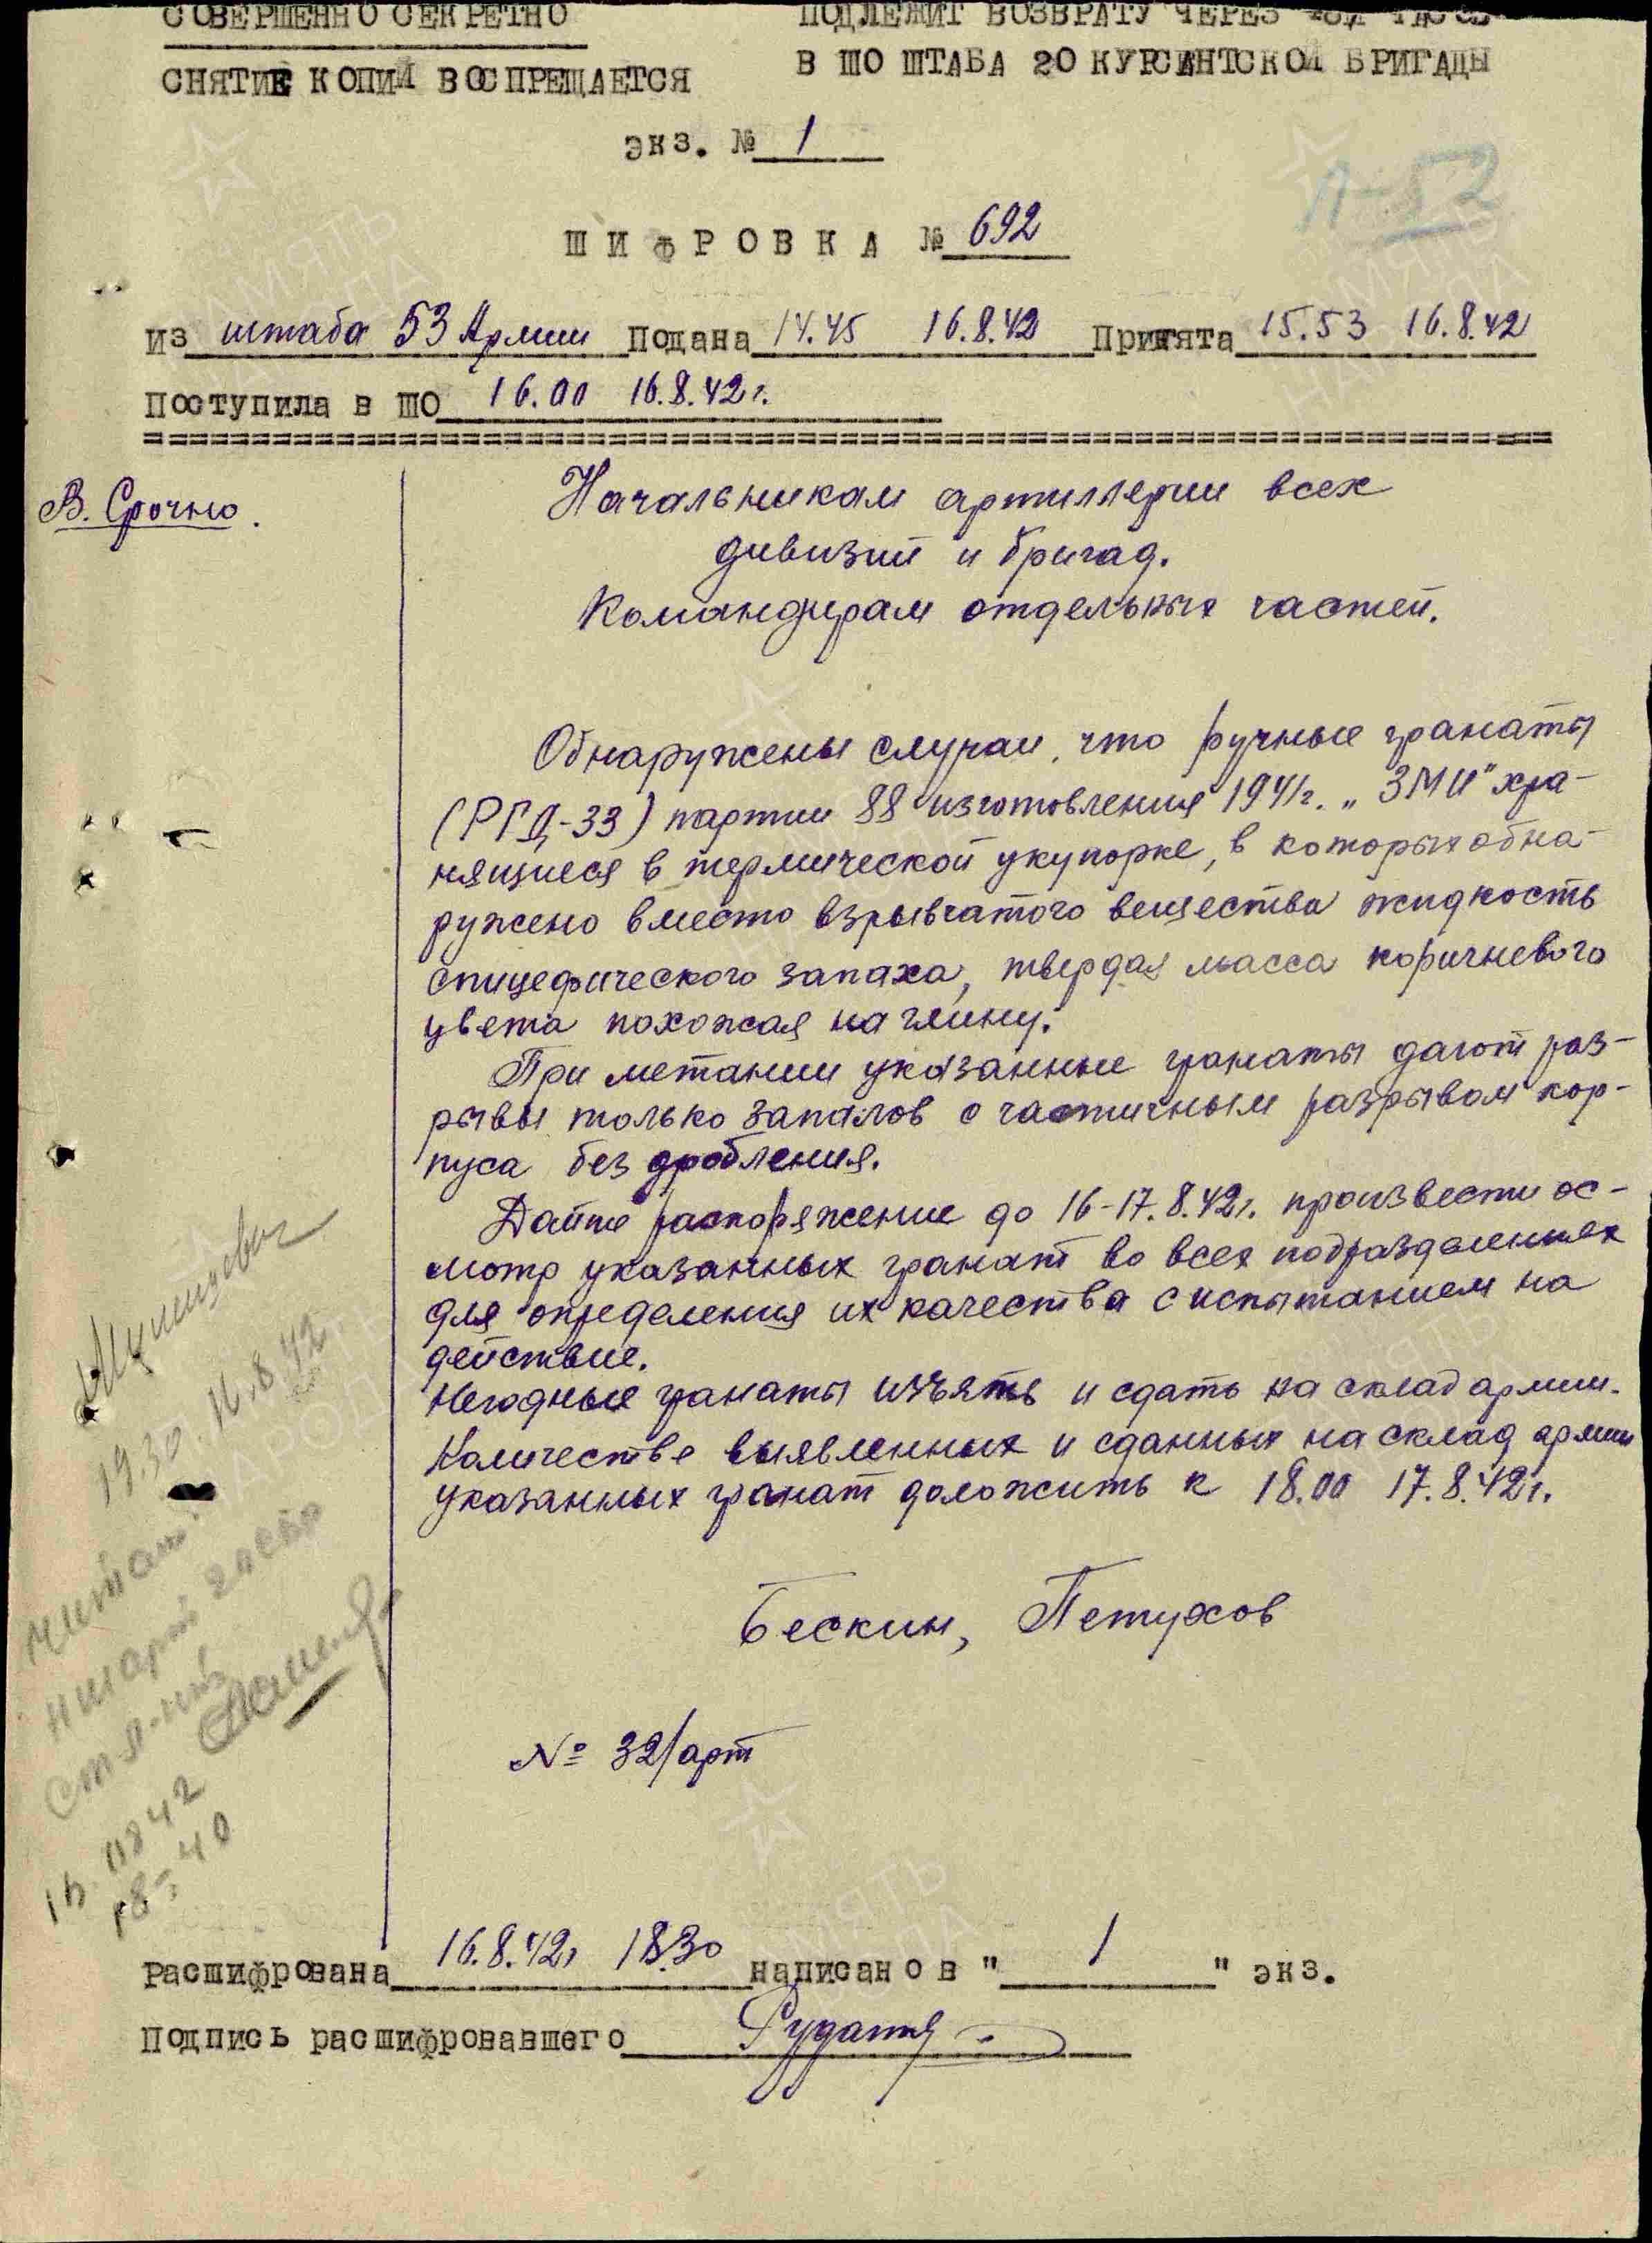 СОВЕРШЕННО СЕКРЕТНО
СНЯТИЕ КОПИЙ ВОСПРЕЩАЕТСЯ
ПОДЛЕЖИТ ВОЗВРАТУ ЧЕРЕЗ
В ШО ШТАБА 20 КУРСАНТСКОЙ БРИГАДЫ
экз. № 1
Л-52
ШИФРОВКА № 692
Из штаба 53 Армии Подана 14.45 16.8.42 Принята 15.53 16.8.42
Поступила в ШО 16.00 16.8.42г.
В. Срочно.
Начальникам артиллерии всех
дивизий и бригад.
Командирам отдельных частей.
Обнаружены случаи, что ручные гранаты
(РГД-33) партии 88 изготовления 1941г. „ЗМИ" хра-
нящиеся в термической укупорке, в которых обна-
ружено вместо взрывчатого вещества жидкость
спицефического запаха, твердая масса коричневого
цвета похожая на глину.
При метании указанные гранаты дают раз-
рывы только запалов с частичным разрывом кор-
пуса без дробления.
Дайте распоряжение до 16-17.8.42г. произвести ос-
мотр указанных гранат во всех подразделениях
для определения их качества с испытанием на
действие.
Негодные гранаты изъять и сдать на склад армии.
Количестве выявленных и сданных на склад армии
указанных гранат доложить к 18.00 17.8.42г.
Бескин, Петухов
№ 32/арт
19.30. 16.8.42
Читал
16.08 42
18-40
Расшифрована 16.8.42г 18.30 написано в " 1 " экз.
Подпись расшифровавшего